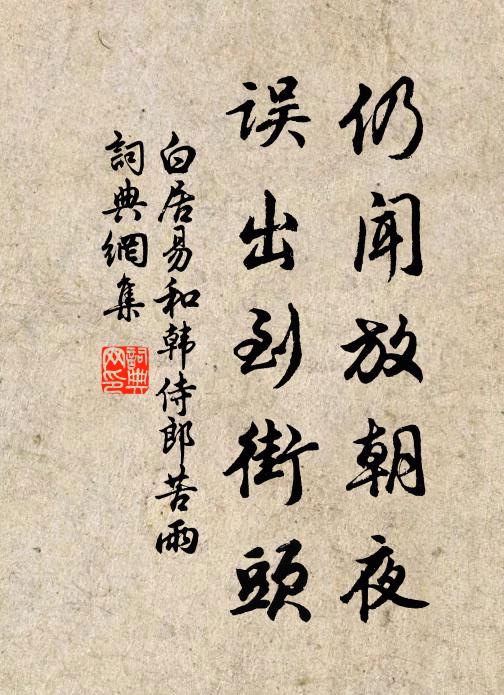 仍闻放朝夜
误出到街頭
白居易和韩侍郎苦雨
詞典網集
詞典
网印